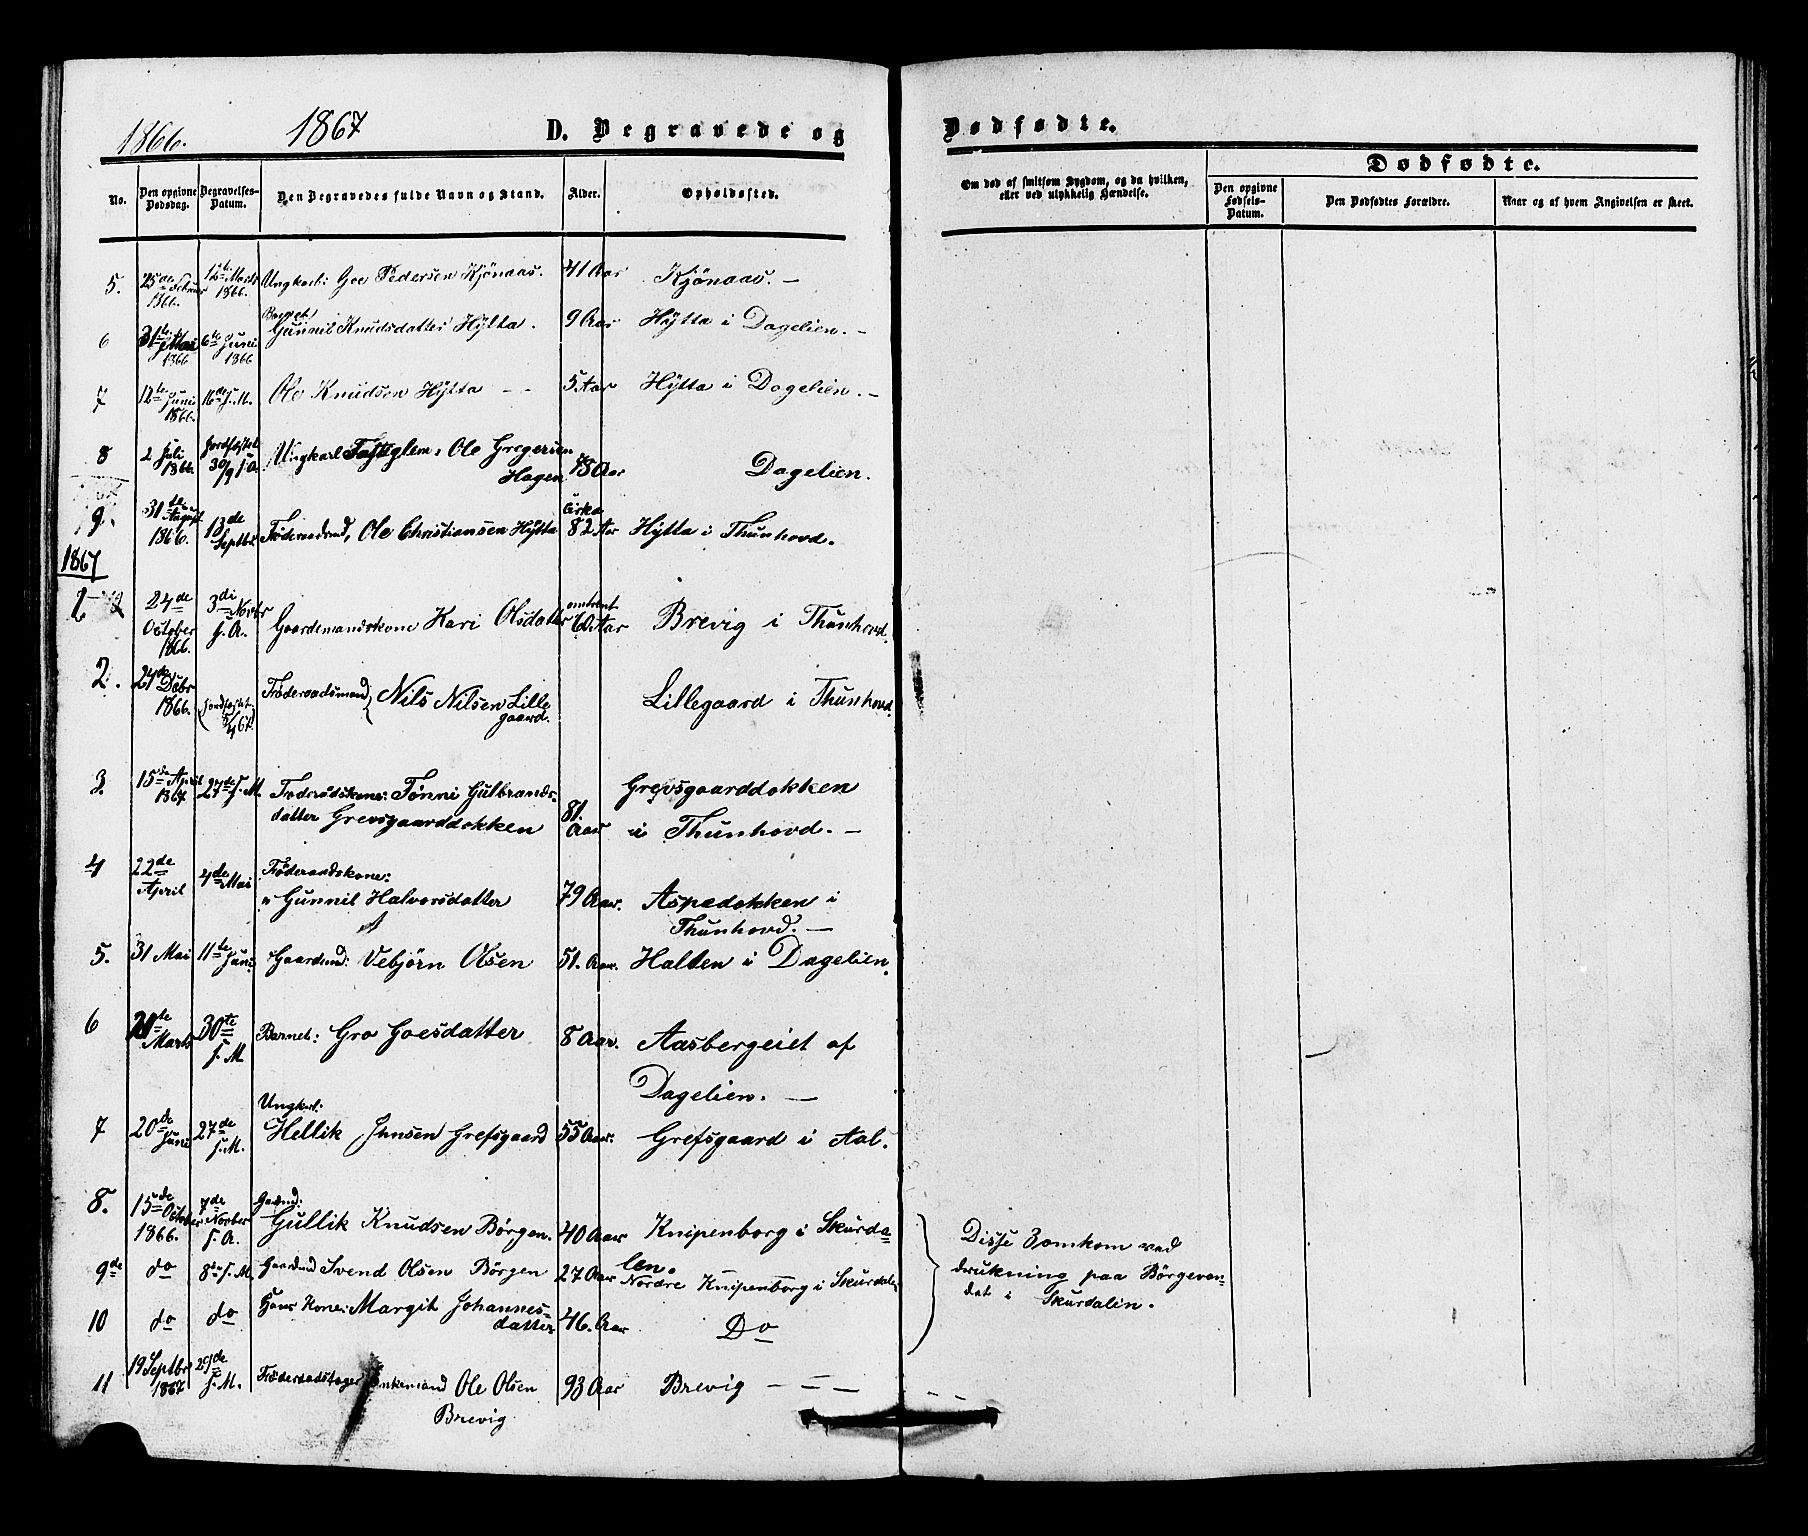 1866. 1867 D. Begravede og Dødfødte.
No. Den opgivne Dødsdag. Begravelses-Datum. Den Begravedes fulde Navn og Stand. Alder. Opholdssted.
Om død af smitsom Sygdom, og da hvilken, eller ved ulykkelig Hændelse.
Dødfødte.
Den opgivne Fødsels-Datum. Den Dødfødtes Forældre. Naar og af hvem Angivelsen er skeet.
5. 25de Februar 1866. 12te Marts 1866. Ungkarl: Goe Pedersen Kjönaas. 41 Aar Kjönaas. —
Barnet
6 31te Mai 1866 6te Juni 1866 Gunnil Knudsdatter Hÿtta. 9 Aar Hÿtta i Dagelien. —
7 12te Juni 1866. 16de s. M. Ole Knudsen Hÿtta — 5 Aar Hÿtta i Dagelien. —
8 2 Juli 1866. Jordfæstet 30/9 s. A. Ungkarl Ole Gregersen
Hagen 78 Aar Dagelien.
9. 31te August 1866. 13de Septbr Föderaadsmd, Ole Christiansen Hÿtta cirka 82 Aar Hÿtta i Thunhovd.
1867
1 24de October 1866. 3di Novbr s. A. Gaardemandskone Kari Olsdatter omtrent 60 Aar Brevig i Thunhovd.
2. 24de Decbr 1866. Jordfæstet 5/4 67. Föderaadsmand, Nils Nilsen Lille
gaard. Lillegaard i Thunhovd.
3. 15de April 1867 27de s. M. Föderaadskone: Tönni Gulbrands-
datter Grevsgaarddokken 81. Aar Grevsgaarddokken
i Thunhovd. —
4 22de April 4de Mai Föderaadskone:
Gunnil Halvorsdatter 79 Aar. Aspedokken i
Thunhovd. —
5. 31 Mai 11te Juni Gaardmd: Vebjörn Olsen 51. Aar. Halten i Dagelien.
6 Marts 30te s. M. Barnet: Gro Goesdatter 8 Aar. Aasbergeiet af
Dagelien. —
Ungkarl:
7 20de Juni 27de s. M. Hellik Jensen Grefsgaard 55 Aar. Grefsgaard i Aal.
8. 15de October 1866. 7de Novber s. A. Gaarmd: Gullik Knudsen Börgen. 40 Aar Knipenborg i Skurda-
len.
9de do 8de s. M. Gaardmd Svend Olsen Börgen 27 Aar Nordre Knipenborg i Skurdalen
10 do do Hans Kone: Margit Johannes-
datter 46. Aar Do
Disse 3 omkom ved
drukning paa Börgevan-
det i Skurdalen.
11 19 Septbr 1867 29de s. M. Föderaadstager Enkemand Ole Olsen
Brevig 93 Aar Brevig — — —